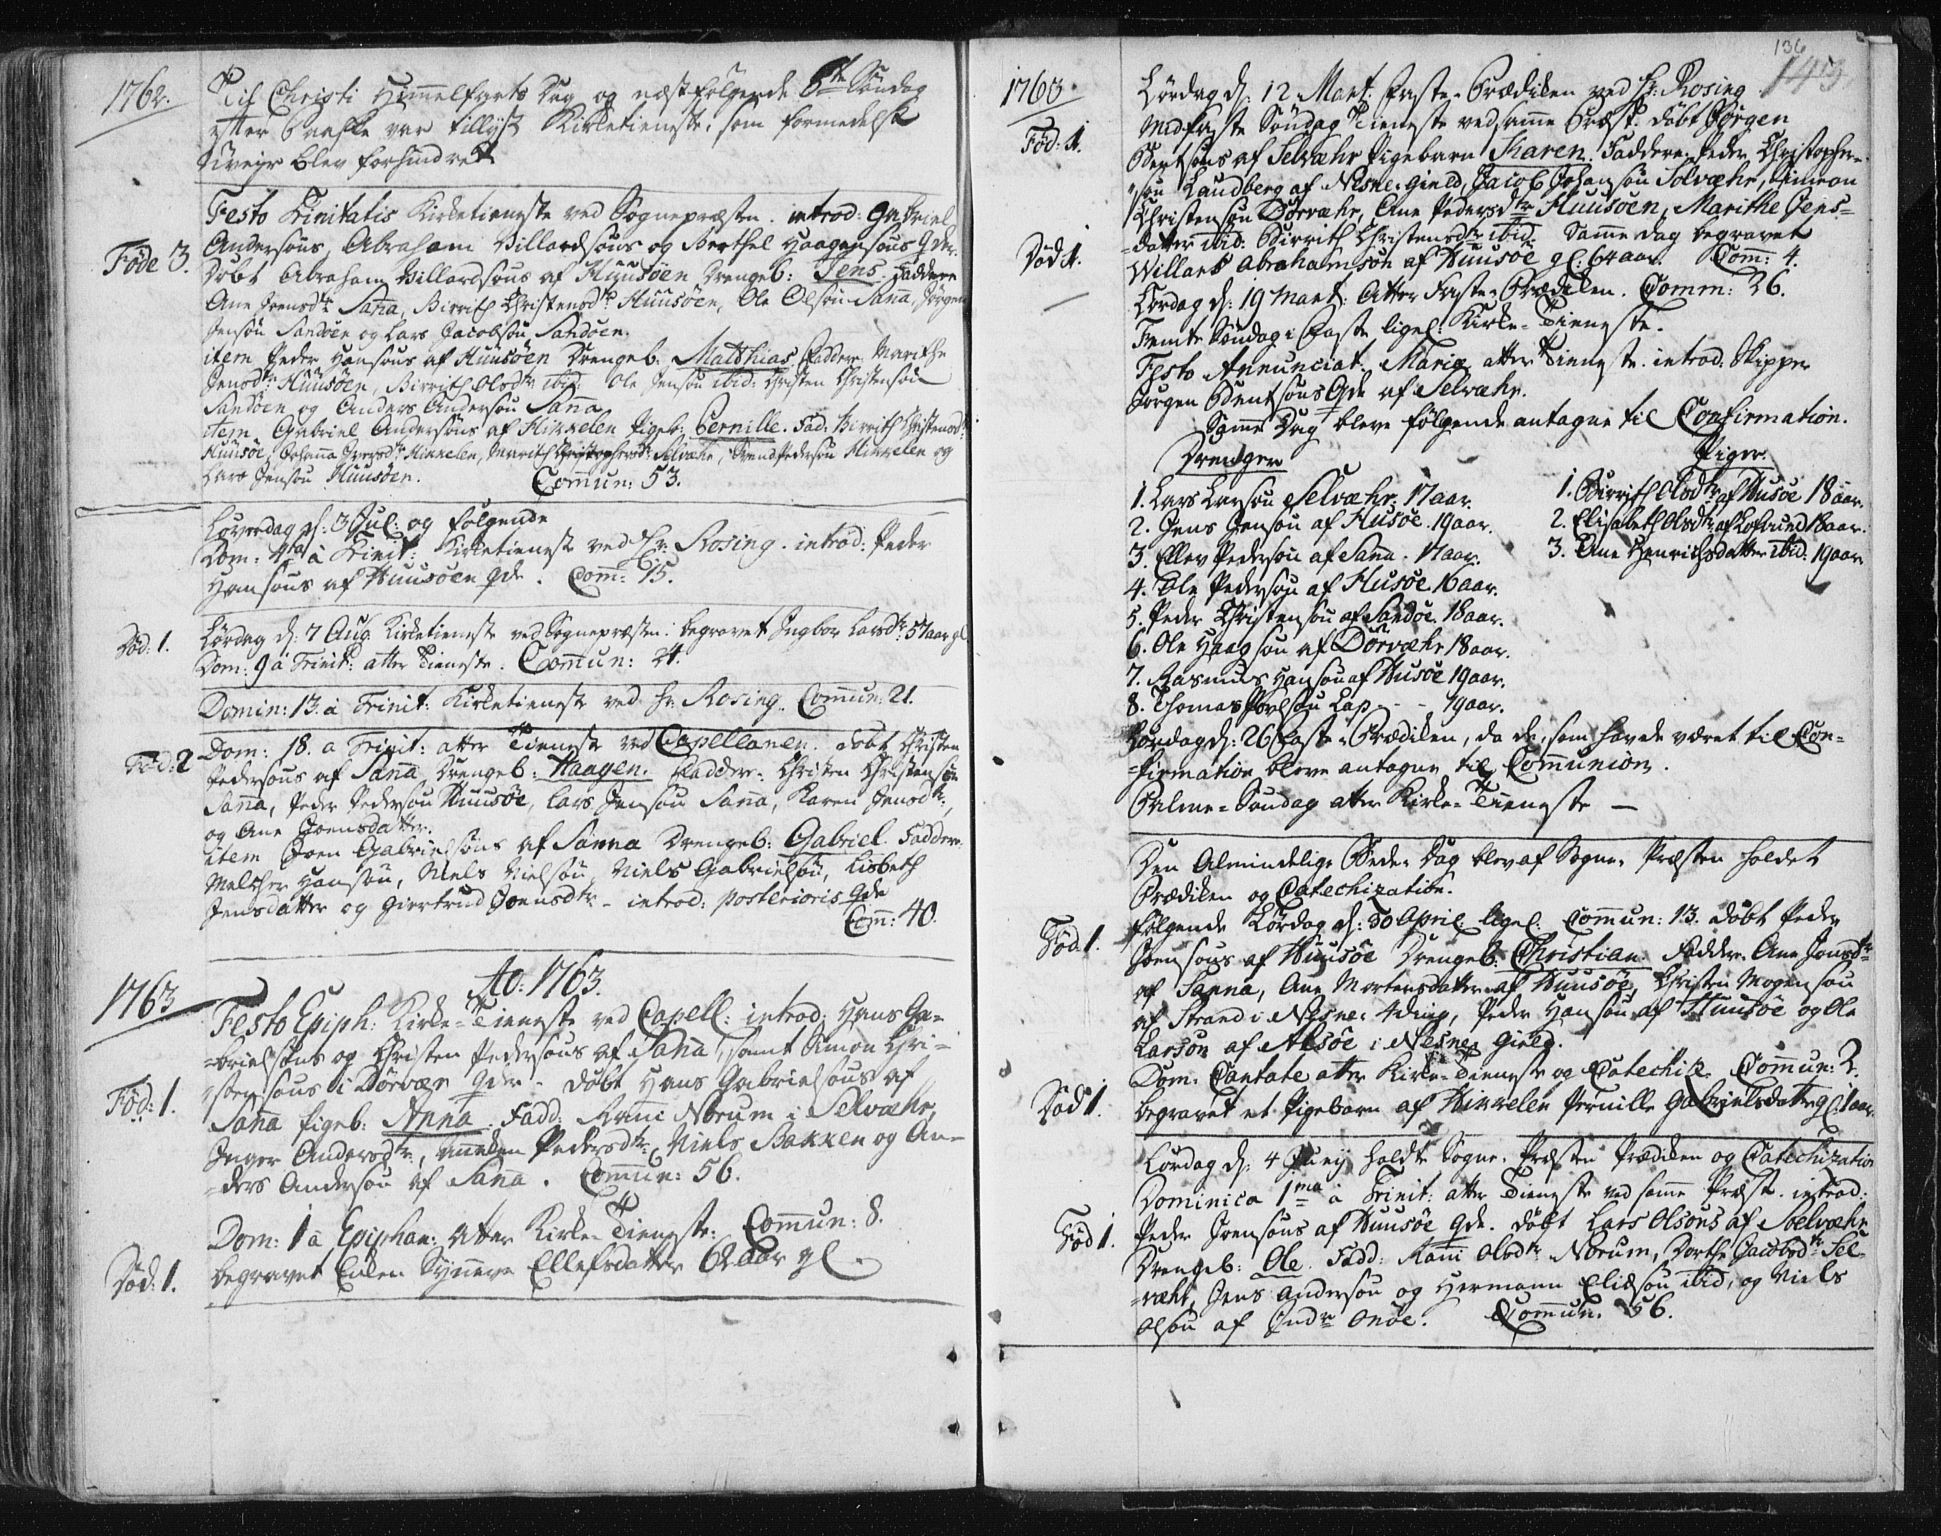 1762.
Til Christi Himmelfarts Dag og næstfølgende 6te Søndag
efter Paaske var tillyst Kirketieneste, som formedelst
Uveyr blev forhindret
Festo Trinitatis Kirketieneste ved Sognepræsten. introd: Gabriel
Andersøns, Abraham Villardsøns og Berthel Haagensøns Qder.
Føde 3.
Døbt Abraham Villardsøns af Huusøen Drengeb: Jens. Faddere
Ane Joensdtr Sanna, Birrith Christensdtr Huusøen, Ole Olsøn Sanna, Jørgen
Jensøn Sandøen og Lars Jacobsøn Sandøen.
item Peder Hansøns af Huusøen Drengeb: Matthias Fadder: Marithe
Jensdtr Huusøen, Birrith Olsdtr ibid: Ole Jensøn ibid: Christen Christensøn
Sandøen og Anders Andersøn Sanna
item Gabriel Andersøns af Hikkelen Pigeb: Pernille. Fad: Birrith Christensdtr
Huusøe, Johanna Iversdtr Hikkelen, Marith Christophersdtr Selvæhr, Svend Pedersøn Hikkelen og
Lars Jensøn Huusøen. Commun: 53.
Løverdag d: 3 Jul: og følgende
Dom: 4ta à Trinit: Kirketieneste ved Hr: Rosing. introd: Peder
Hansøns af Huusøen Qde. Comm: 15.
Død: 1.
Lørdag d: 7 Aug. Kirketieneste ved Sognepræsten. begravet Ingbor Larsdtr 57 aar gl.
Dom: 9 à Trinit: atter Tieneste. Commun: 24.
Domin: 13. à Trinit: Kirketieneste ved Hr: Rosing. Commun: 21.
Fød: 2
Dom: 18. a Trinit: atter Tieneste ved Capellanen. døbt Christen
Pedersøns af Sanna Drengeb: Haagen. Fadder: Christen Christensøn
Sanna, Peder Pedersøn Huusøe, Lars Jensøn Sanna, Karen Jensdtr.
og Ane Joensdatter.
item Joen Gabrielsøns af Sanna Drengeb: Gabriel. Fadder.
Melcher Hansøn, Niels Nielsøn, Niels Gabrielsøn, Lisbeth
Jensdatter og Giertrud Joensdtr - introd: posterioris Qde
Com: 40.
Ao: 1763.
1763
Festo Epiph: Kirke-Tieneste ved Capell: introd: Hans Ga-
-brielsøns og Christen Pedersøns af Sanna, samt Simon Chri-
stensøns i Dørvær Qder - døbt Hans Gabrielsøns af
Fød: 1.
Sana Pigeb: Anna. Fadd: Nørum i Selvæhr,
Inger Andersdtr, Pedersdtr: Niels Bakken og An-
-ders Andersøn af Sana. Commun: 56.
Dom: 1 à Epiphan: atter Kirke-Tieneste: Commun: 8.
Død: 1.
begravet Synneve Ellefsdatter 62 aar gl.
136
143
1763
Lørdag d: 12 Mart: Faste-Prædiken ved Hr: Rosing
Midfaste Søndag Tieneste ved samme Præst. døbt Jørgen
Fød: 1.
Bentsøns af Selvæhr Pigebarn Karen. Faddere: Peder Christopher-
søn Laudberg af Nesne-Gield, Jacob Johansøn Solvæhr, Simeon
Christensøn Dørvæhr, Ane Pedersdtr Huusøen, Marithe Jens-
-datter ibid: Birrith Christensdtr ibid: Samme dag begravet
Død 1.
Willars Abrahamsøn af Huusøe gl: 64 aar. Com: 4.
Lørdag d: 19 Mart: Atter Faste-Prædiken. Comm: 26.
Femte Søndag i Faste ligel: Kirke-Tieneste.
Festo Annunciat: Mariæ atter Tieneste. introd. Skipper
Jørgen Bentsøns Qde af Selvæhr.
Samme Dag bleve følgende antagne til Confirmation.
Drenger
Piger.
1. Lars Larsøn Selvæhr. 17 aar.
2. Jens Jensøn af Husøe. 19 aar.
3. Ellev Pedersøn af Sana. 17 aar.
4. Ole Pedersøn af Husøe 16 aar.
5. Peder Christensøn af Sandøe. 18 aar.
6. Ole Haagsøn af Dørvæhr 18 aar.
7. Rasmus Hansøn af Husøe 19 aar.
8. Thomas Povlsøn Lap - - 19 aar.
1. Birrith Olsdtr af Husøe 18 aar.
2. Elisabeth Olsdtr af Lofund 18 aar.
3. Ane Henrichsdatter ibid. 19 aar
Lørdag d: 26 Faste-Prædiken, da de, som havde været til Con-
-firmation bleve antagne til Communion.
Palme-Søndag atter Kirke-Tieneste —
Den Almindelige Bede-Dag blev af Sogne-Præsten holdet
Prædiken og Catechization.
Fød. 1.
følgende Lørdag d: 30 April ligel: Commun: 13. døbt Peder
Joensøns af Huusøe Drengeb: Christian. Fadder. Ane Jonsdtr
af Sanna, Ane Mortensdatter af Huusøe, Christen Mogensøn
af Strand i Nesne-4ding, Peder Hansøn af Huusøe og Ole
Larsøn af Alsøe i Nesne Gield.
Dom: Cantate atter Kirke-Tieneste og Catechiz. Commun: 2.
Død 1.
begravet et Pigebarn af Hikkelen Pernille Gabrielsdatter gl. 1 aar.
Lørdag d: 4 Junij holdt Sogne-Præsten Prædiken og Catechization
Dominica 1ma à Trinit: atter Tieneste ved samme Præst. introd:
Fød 1.
Peder Joensøns af Huusøe Qde. døbt Lars Olsøns af Soelvæhr
Drengeb: Ole. Fadd: Olsdtr Nørum, Dorthe Jacobsdtr Sel-
-væhr, Jens Andersøn og Hermann Eliæsøn ibid, og Niels
Olsøn af Indre Onøe. Commun. 56.